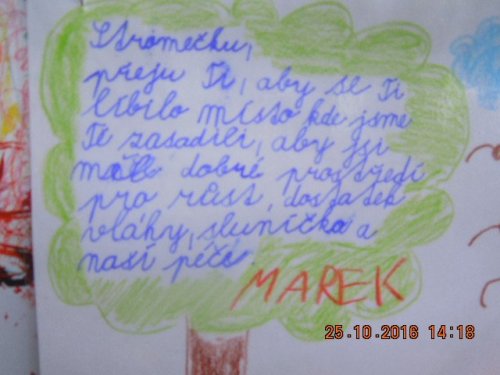 Stromečku,
přeju Ti, aby se Ti
líbilo místo kde jsme
Tě zasadili, aby jsi
měl dobré prostředí
pro růst, dostatek
vláhy, sluníčka a
naší péče.
MAREK
25.10.2016 14:18